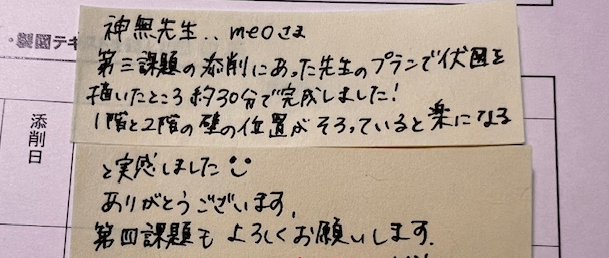 ・製図テキス
添削日
神無先生.. meoさま
第三課題の添削にあった先生のプランで伏図を
描いたところ約30分で完成しました!
1階と2階の壁の位置がそろっていると楽になる
と実感しました
ありがとうございます。
第四課題もよろしくお願いします.